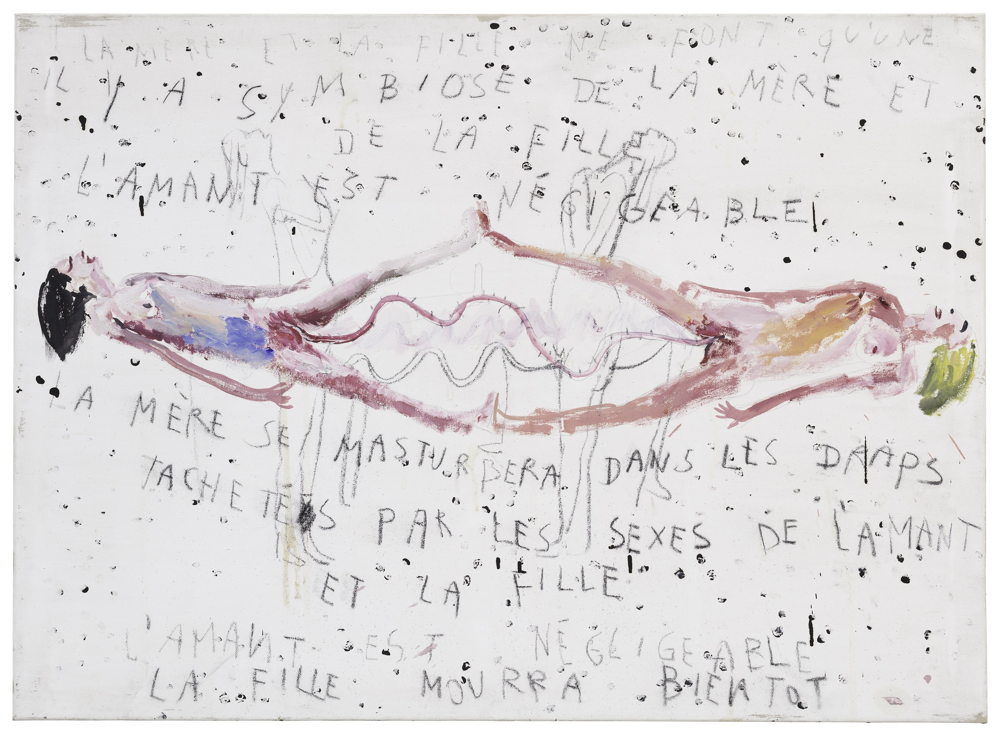 LA MÈRE ET LA FILLE NE FONT QU'UNE
IL Y A SYMBIOSE DE LA MÈRE ET
DE LA FILLE
L'AMANT EST NÉGIGEABLE
LA MÈRE SE MASTURBERA DANS LES DRAPS
TACHETÉES PAR LES SEXES DE L'AMANT
ET LA FILLE
L'AMANT EST NÉGLIGEABLE
LA FILLE MOURRA BIENTOT